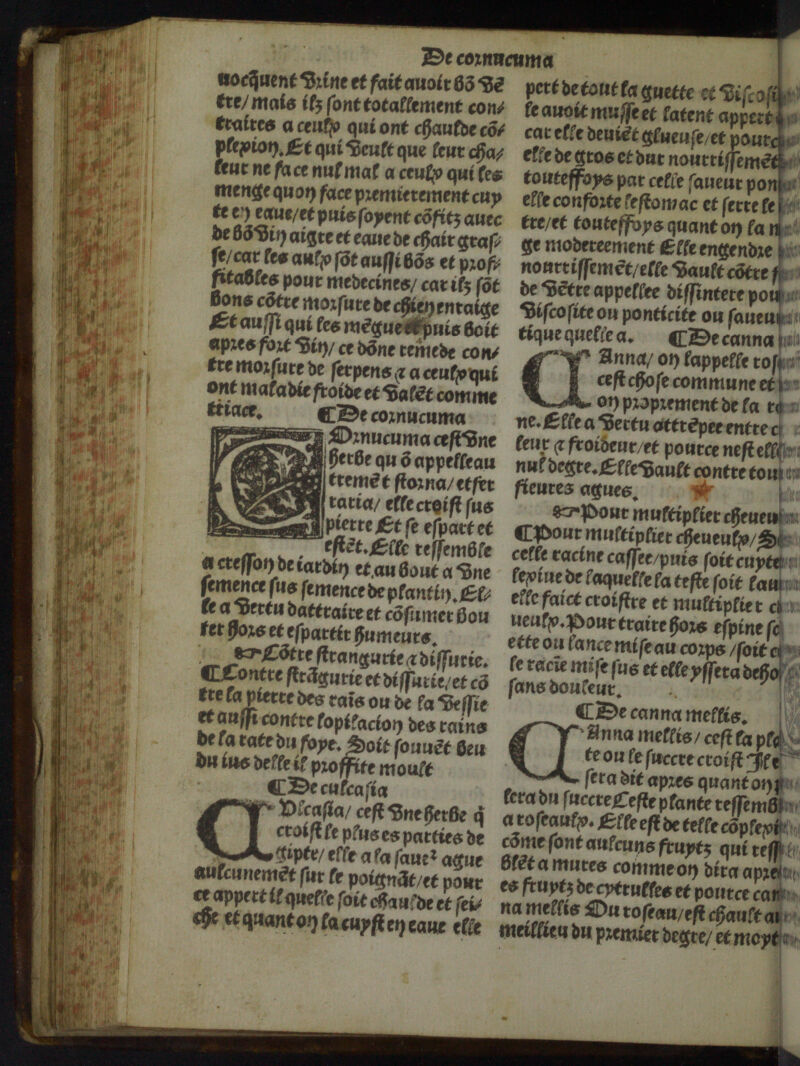 De cornucuma
nocquent Urine et fait auoir bõ vẽ
tre/ mais ilz sont totallement con-
traires a ceulx qui ont chaulde cõ-
plexion. Et qui veult que leur cha-
leur ne face nul mal a ceulx qui les
menge quon face premierement cuy
re en eaue/et puis soyent cõfitz auec
de bõ vin aigre et eaue de chair gras-
se/car les aulx sõt aussi bõs et prof-
fitables pour medecines/ car ilz sõt
bons cõtre morsure de chien enraige
Et aussi qui les mẽgue et puis boit
apres fort vin/ ce dõne remede con-
tre morsure de serpens ⁊ a ceulx qui
ont maladie froide et valẽt comme
triacr. ¶ De cornucuma
COrnucuma cest vne
herbe qu õ appelleau
tremẽt storna/ et fer
raria/ elle croist sus
pierre Et se espart et
estẽt. Elle ressemble
a cresson de iardin et au bout a vne
semence sus semence de plantin. El-
le a vertu dattraire et cõsumer bou
ter hors et espartir humeurs.
☞ Cõtre strangurie ⁊ dissurie.
¶ Contre strãgurie et dissurie/et cõ
tre la pierre des rais ou de la vessie
et aussi contre lopilacion des rains
de la rate du foye. Soit souuẽt beu
du ius delle il proffite moult
¶ De culcasia
CUlcasia/ cest vne herbe q̃
croist le plus es parties de
egipte/ elle a la sauer ague
aulcunemẽt sur le poignãt/et pour
ce appert il quelle soit chaulde et sei-
che et quant on la cuyst en eaue elle
pert de tout la guette et viscosi
le auoit musse et latent appert
car elle deuiẽt glueuse/et pource
elle de gros et dur nourrissemẽt
touteffoys par celle saueur pon
elle conforte lestomac et serre le
tre/et touteffoys quant on la
ge modereement Elle engendre
nourrissemẽt/elle vault cõtre
de vẽtre appellee dissintere pou
viscosite ou ponticite ou saueu
tique quelle a. ¶ De canna
CAnna/ on lappelle ros
cest chose commune et
on proprement de la
ne. Elle a vertu attrẽpee entre
leur ⁊ froideur/et pource nest ell
nul degre. Elle vault contre tou
fieures agues.
☞ Pour multiplier cheueu
¶ Pour multiplier cheueulx/ S
celle racine cassee/puis soit cuyte
lexiue de laquelle la teste soit lau
elle faict croistre et multiplier
ueulx. Pour traire hors espine
ette ou lance mise au corps /soit
le racie mise sus et elle yssera deho
sans douleur.
¶ De canna mellis.
CAnna mellis/ cest la
te ou le succre croist Il
sera dit apres quant on
lera du succre Ceste plante ressemb
a roseaulx. Elle est de telle cõplexi
cõme sont aulcuns fruytz qui ress
blẽt a mures comme on dira apre
es fruytz de cytrulles et pource can
na mellis Du roseau/est chault au
meillieu du premier degre/ et moyt